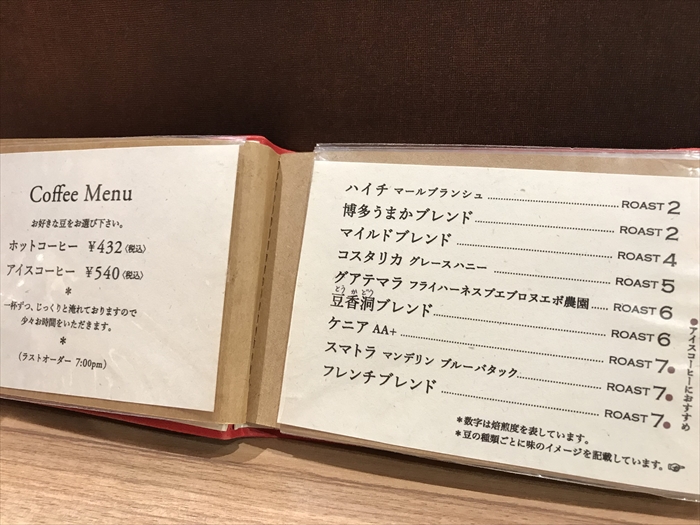 Coffee Menu
お好きな豆をお選び下さい。
ホットコーヒー ¥432〈税込〉
アイスコーヒー ¥540〈税込〉
*
一杯ずつ、じっくりと淹れておりますので
少々お時間をいただきます。
*
(ラストオーダー 7:00pm)
ハイチ マールブランシュ ROAST 2
博多うまかブレンド ROAST 2
マイルドブレンド ROAST 4
コスタリカ グレースハニー ROAST 5
グアテマラ フライハーネスプエブロヌエボ農園 ROAST 6
とうかどう
豆香洞ブレンド ROAST 6
ケニア AA+ ROAST 7●
スマトラ マンデリン ブルーバタック ROAST 7●
フレンチブレンド ROAST 7●
*数字は焙煎度を表しています。
*豆の種類ごとに味のイメージを記載しています。☞
●アイスコーヒーにおすすめ